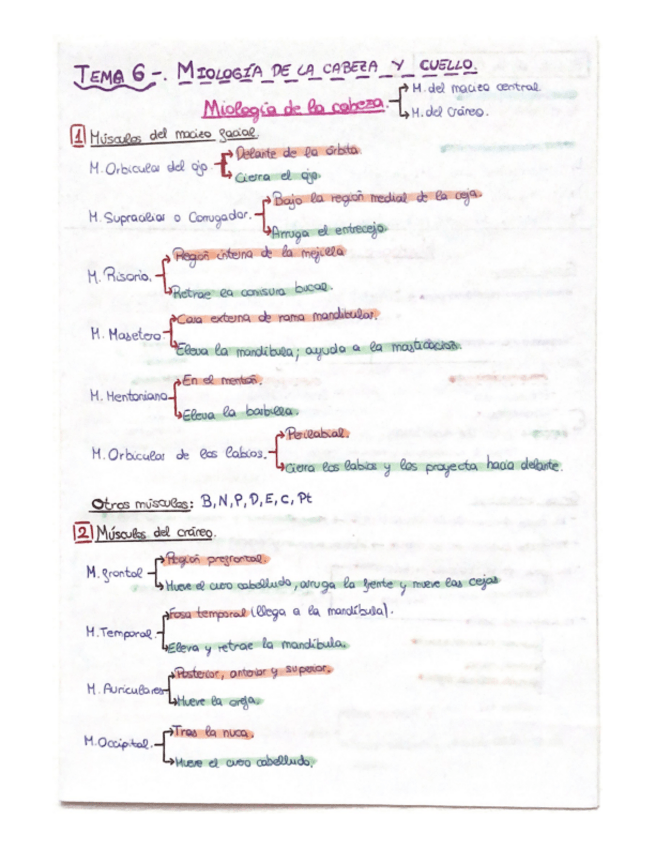 TEMA 6-. MIOLOGÍA DE LA CABEZA Y CUELLO.
Miología de la cabeza.
M. del macizo central
M. del Cráneo.
1 Músculos del macizo facial.
M. Orbicular del ojo
Delante de la órbita.
Cierra el ojo.
M. Supraciliar o Corrugador.
Bajo la región medial de la ceja.
Arruga el entrecejo.
M. Risorio.
Región interna de la mejilla
Retrae la comisura bucal.
M. Masetero.
Cara externa de rama mandibular.
Eleva la mandíbula; ayuda a la masticación.
M. Mentoniano
En el mentón.
Eleva la barbilla.
M. Orbicular de los labios.
Perilabial.
Cierra los labios y los proyecta hacia delante.
Otros músculos: B, N, P, D, E, C, Pt
2 Músculos del cráneo.
M. frontal
Región prefrontal.
Mueve el cuero cabelludo, arruga la frente y mueve las cejas
M. Temporal.
Fosa temporal (llega a la mandíbula).
Eleva y retrae la mandíbula.
M. Auriculares
Posterior, anterior y superior.
Mueve la oreja.
M. Occipital.
Tras la nuca.
Mueve el cuero cabelludo.